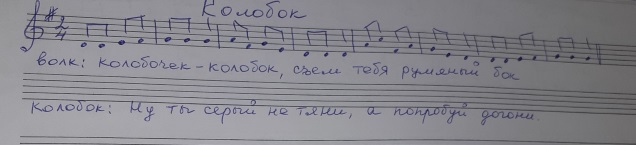 Колобок
2/4
Волк: Колобочек-колобок, съем тебя румяный бок
Колобок: Ну ты серый не тяни, а попробуй догони.